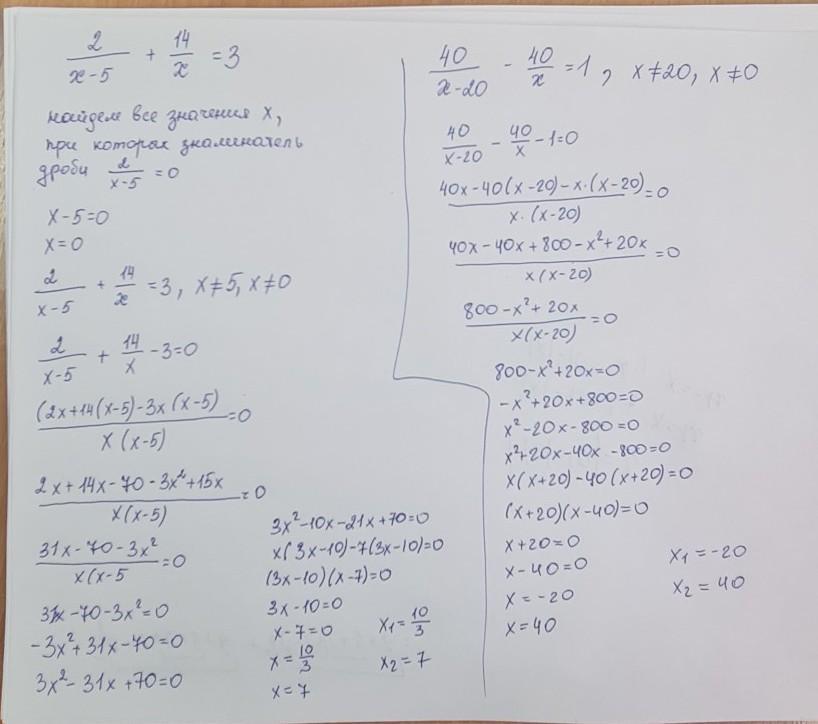 2/(x-5) + 14/x = 3
найдем все значения x,
при которах знаминатель
дроби 2/(x-5) = 0
x-5=0
x=0
2/(x-5) + 14/x = 3, x≠5, x≠0
2/(x-5) + 14/x - 3=0
((2x+14(x-5)-3x(x-5))/(x(x-5)) =0
(2x+14x-70-3x²+15x)/(x(x-5)) =0
(31x-70-3x²)/(x(x-5) =0
31x-70-3x²=0
-3x²+31x-70=0
3x²-31x+70=0
3x²-10x-21x+70=0
x(3x-10)-7(3x-10)=0
(3x-10)(x-7)=0
3x-10=0
x-7=0
x=10/3
x=7
x₁=10/3
x₂=7
40/(x-20) - 40/x =1, x≠20, x≠0
40/(x-20) - 40/x - 1=0
(40x-40(x-20)-x·(x-20))/(x·(x-20)) =0
(40x-40x+800-x²+20x)/(x(x-20)) =0
(800-x²+20x)/(x(x-20)) =0
800-x²+20x=0
-x²+20x+800=0
x²-20x-800=0
x²+20x-40x-800=0
x(x+20)-40(x+20)=0
(x+20)(x-40)=0
x+20=0
x-40=0
x=-20
x=40
x₁=-20
x₂=40